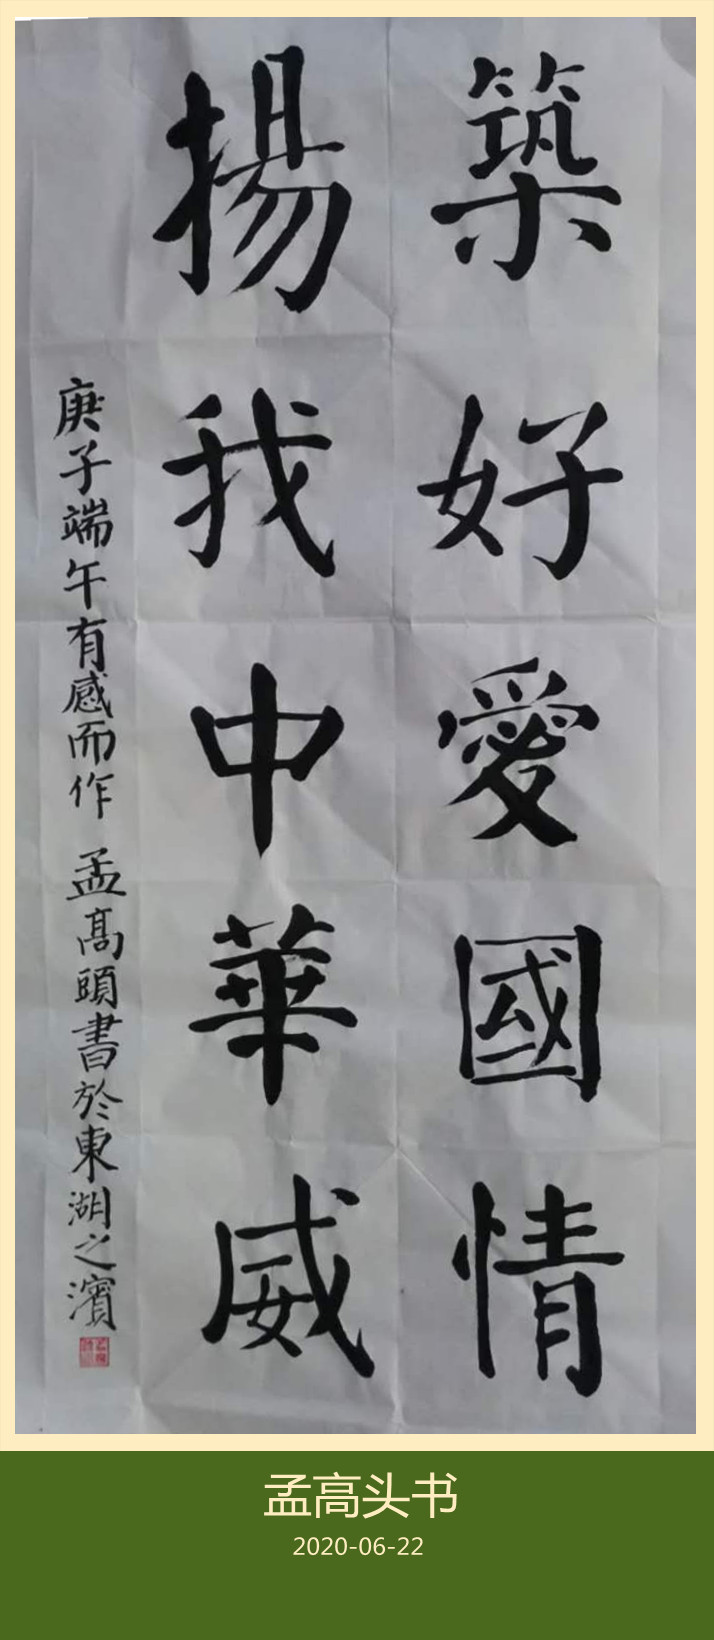 築好愛國情
揚我中華威
庚子端午有感而作 孟高頭書於東湖之濱
孟高头书
2020-06-22